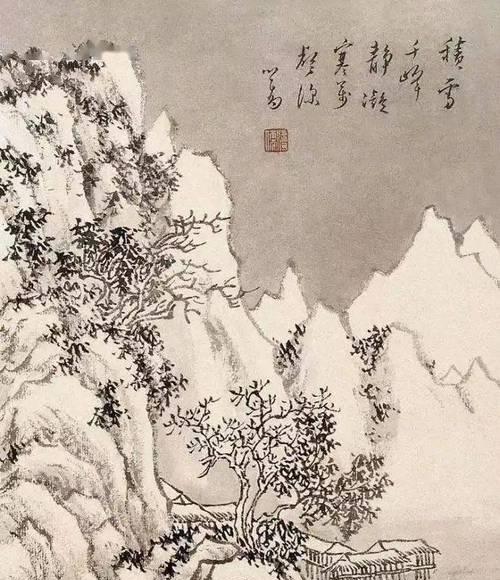 積雪
千峰
靜凝
寒萬
壑深
心畬